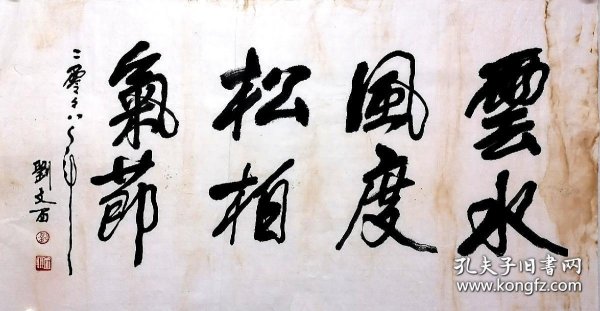 雲水
風度
松柏
氣節
二零零八年
劉文西
孔夫子旧书网
www.kongfz.com